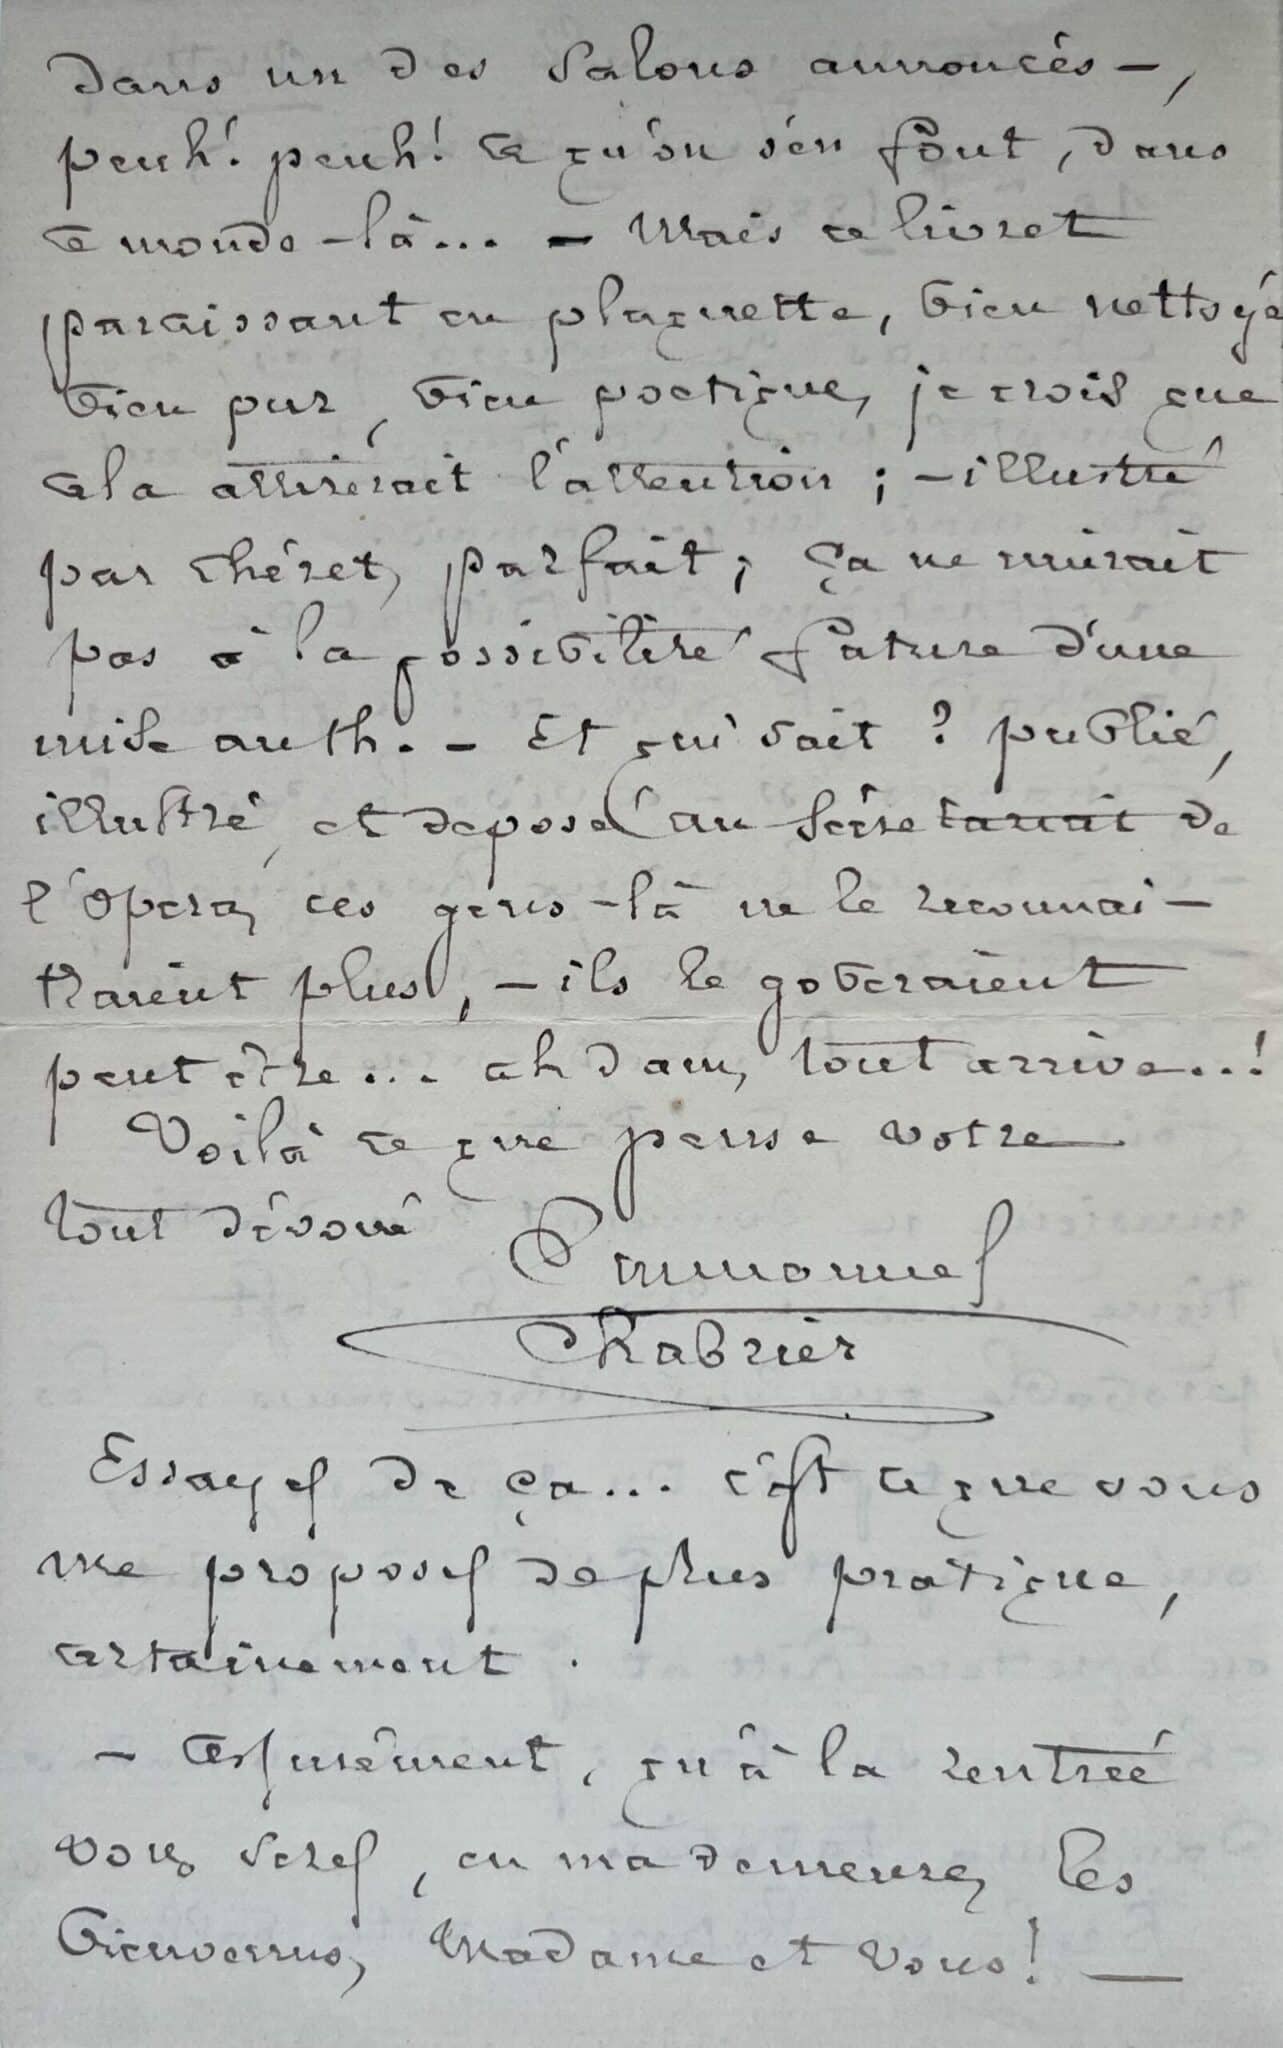 dans un des salons annoncés —,
peuh! peuh! ce qu'on s'en fout, dans
ce monde-là... — Mais ce livret
paraissant en plaquette, bien nettoyé,
bien pur, bien poétique, je crois que
cela attirerait l'attention ; — illustré
par Chéret, parfait ; ça ne nuirait
pas à la possibilité future d'une
mise au th. — Et qui sait ? publié,
illustré, et déposé au Secrétariat de
l'Opéra, ces gens-là ne le reconnai-
traient plus, — ils le goberaient
peut être... ah dam, tout arrive...!
Voilà ce que pense votre
tout dévoué Emmanuel
Chabrier
Essayez de ça... c'est ce que vous
me proposez de plus pratique,
certainement.
— Assurément, qu'à la rentrée
vous serez, en ma demeure, les
bienvenus, Madame et vous! —